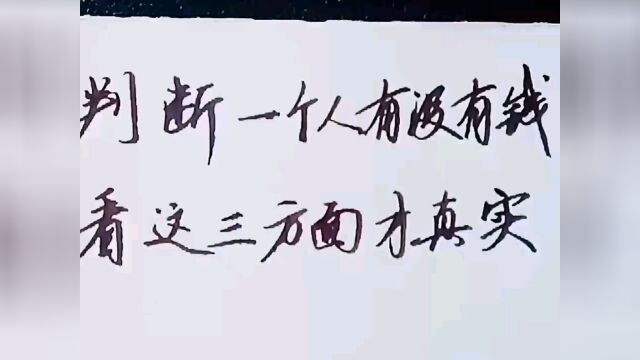 判断一个人有没有钱
看这三方面才真实